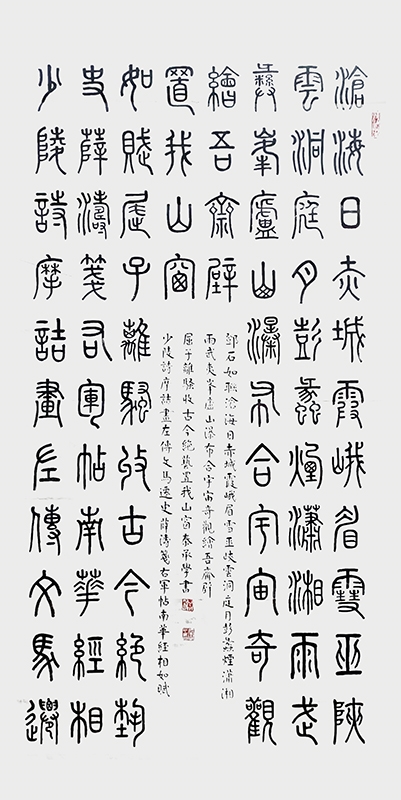 滄海日赤城霞峨眉雪巫陝
雲洞庭月彭蠡煙瀟湘雨武
彝峯廬山瀑布合宇宙奇觀
繪吾齋壁
少陵詩摩詰畫左傳文馬遷
史薛濤箋右軍帖南華經相
如賦屈子離騷收古今絕埶
置我山窗
鄧石如聯滄海日赤城霞峨眉雪巫峽雲洞庭月彭蠡煙瀟湘
雨武夷峯廬山瀑布合宇宙奇觀繪吾齋壁
少陵詩摩詰畫左傳文馬遷史薛濤箋右軍帖南華經相如賦
屈子離騷收古今絕藝置我山窗秦承學書